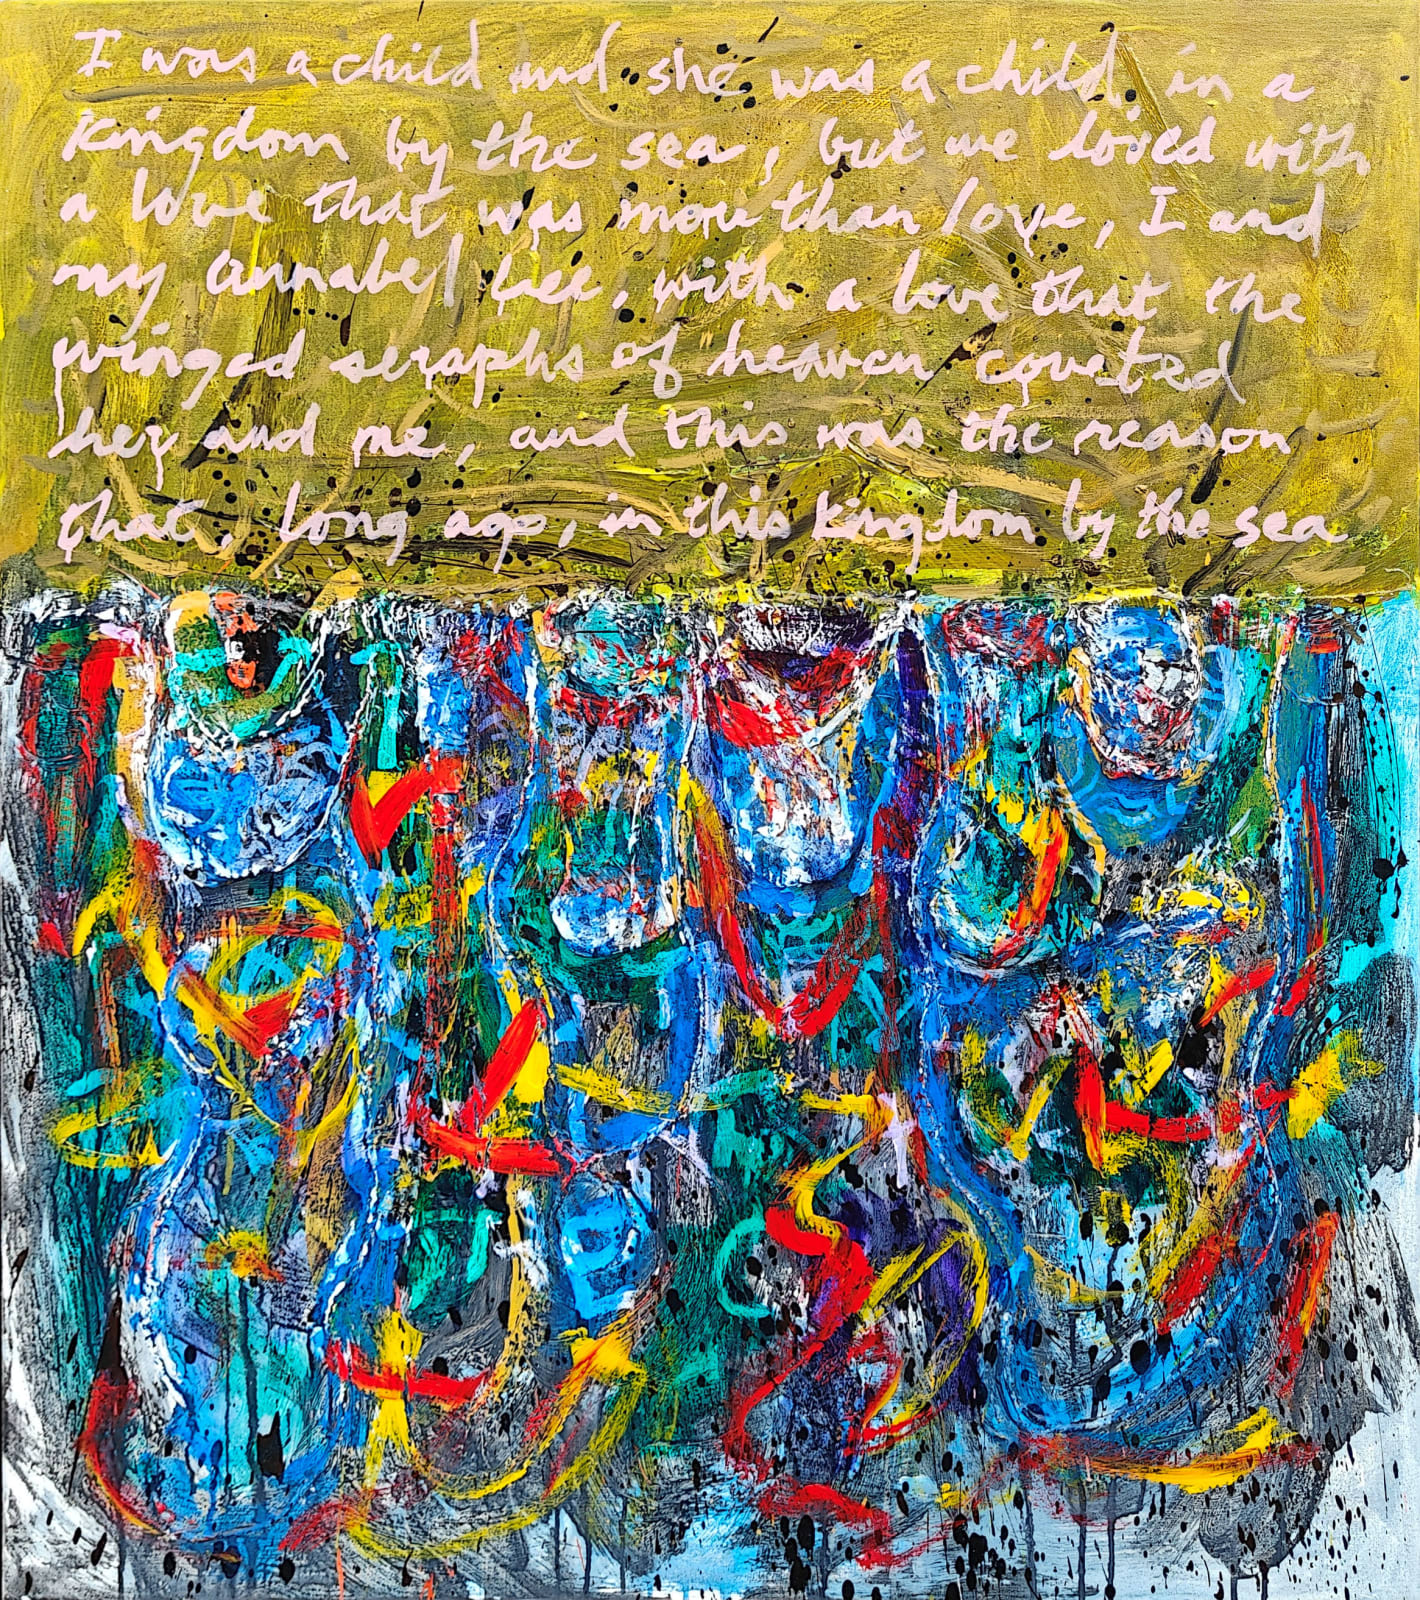 I was a child and she was a child, in a
kingdom by the sea, but we loved with
a love that was more than love, I and
my annabel lee, with a love that the
winged seraphs of heaven coveted
her and me, and this was the reason
that, long ago, in this kingdom by the sea